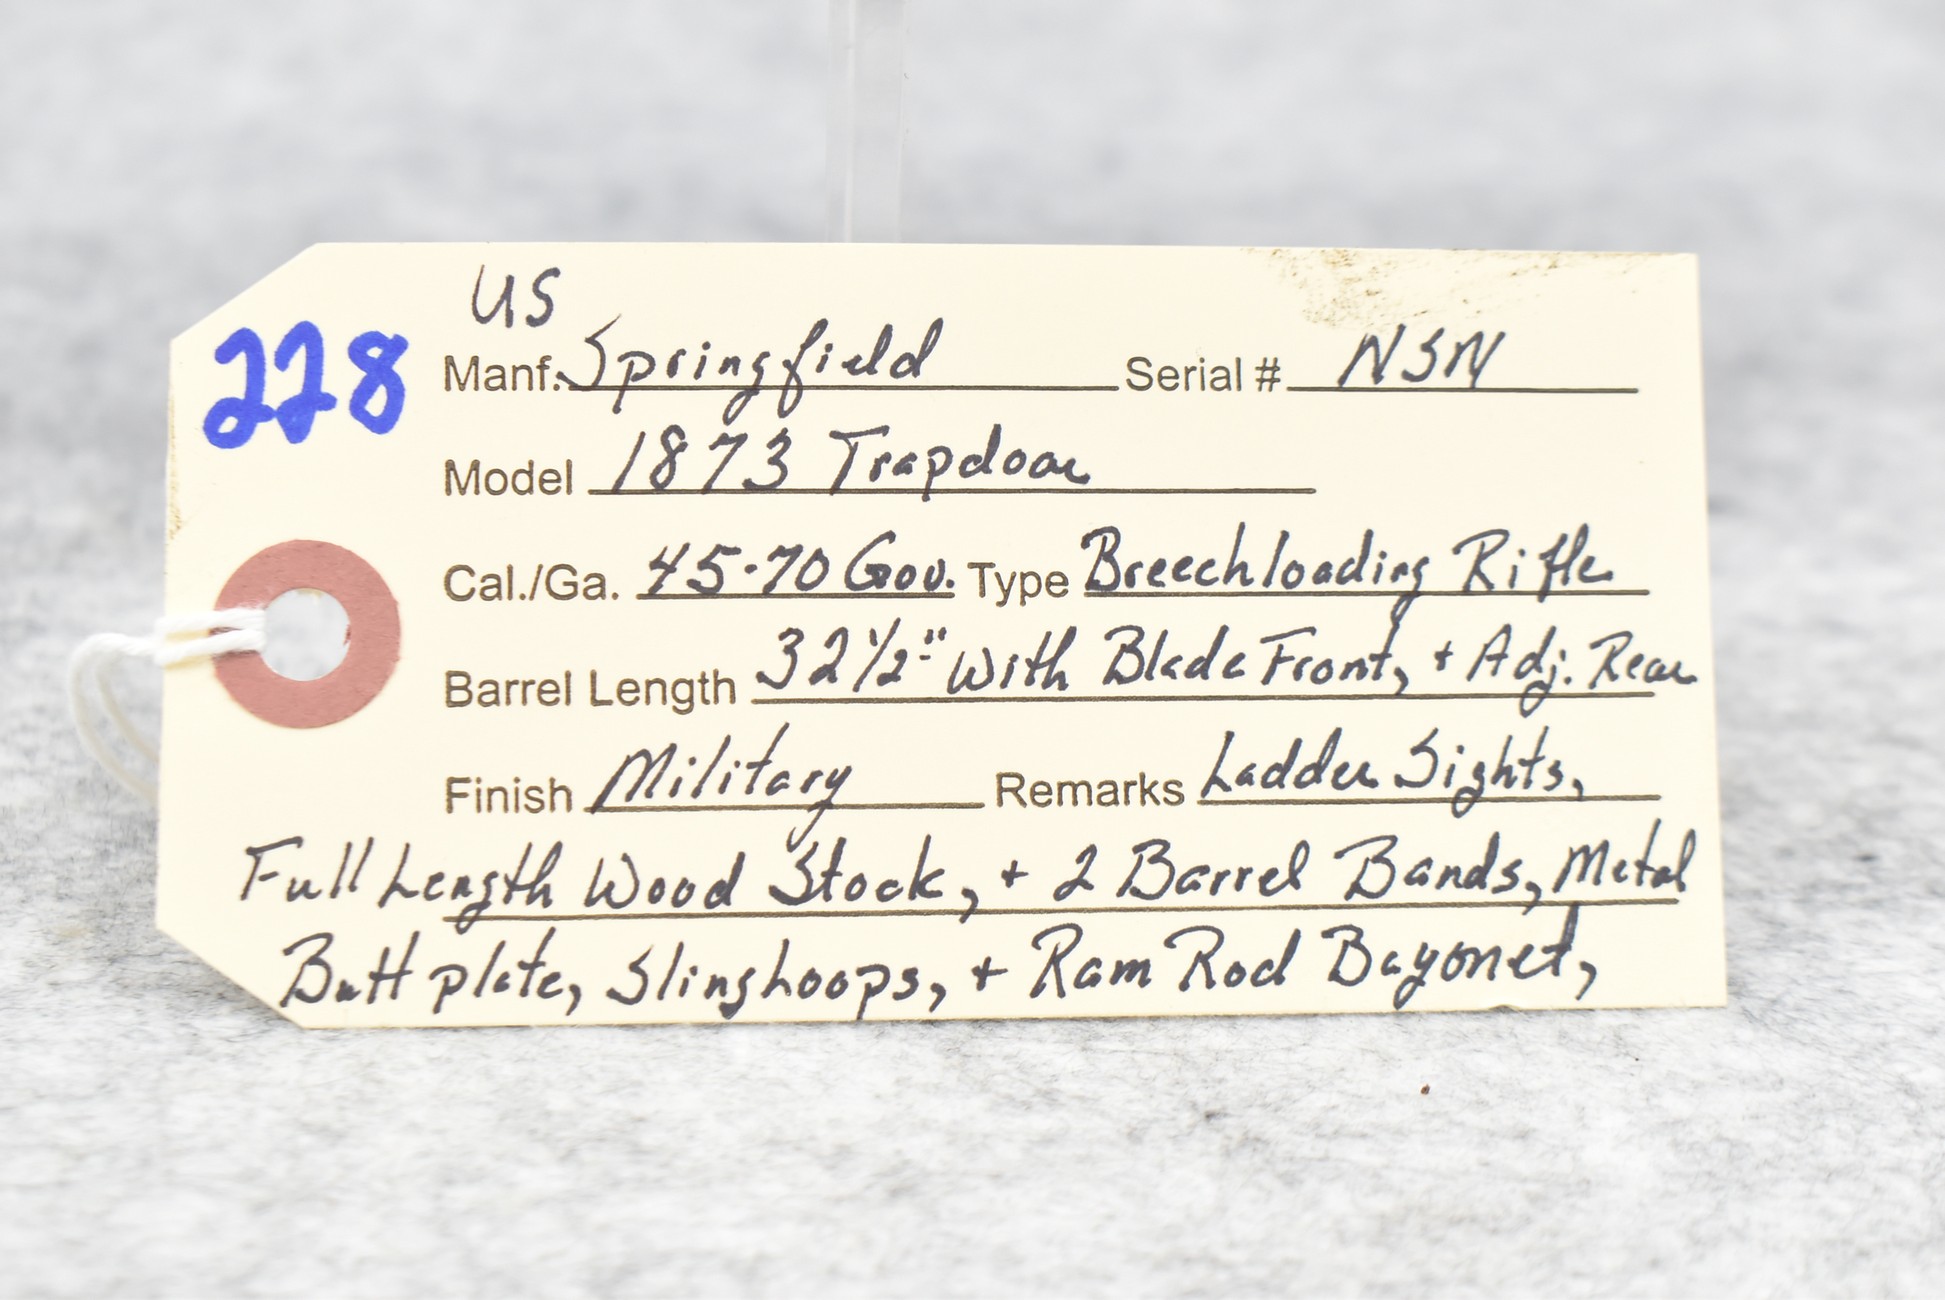 228
US
Manf. Springfield Serial # NSN
Model 1873 Trapdoor
Cal./Ga. 45-70 Gov. Type Breechloading Rifle
Barrel Length 32 1/2" with Blade Front, + Adj. Rear
Finish Military Remarks Ladder Sights,
Full Length Wood Stock, + 2 Barrel Bands, Metal
Butt plate, Sling hoops, + Ram Rod Bayonet,